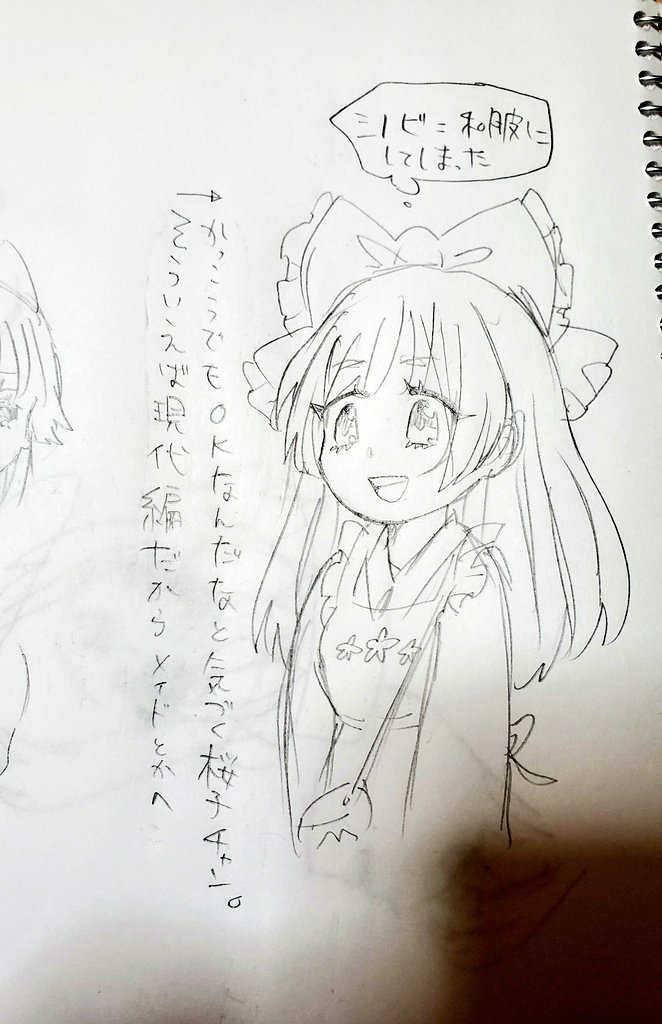 シノビ=和服に
してしまった
→そういえば現代編だからメイドとかへ
かっこうでもOKなんだなと気づく桜子チャン。